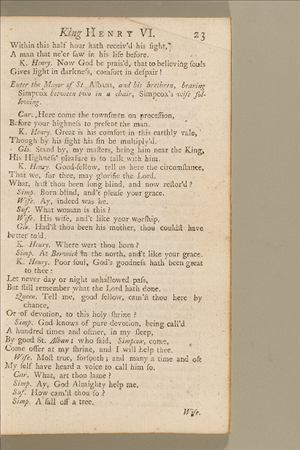 King HENRY VI. 23
Within this half hour hath receiv'd his sight,
A man that ne'er saw in his life before.
K. Henry. Now God be prais'd, that to believing souls
Gives light in darkness, comfort in despair!
Enter the Mayor of St. Albans, and his brethren, bearing
Simpcox between two in a chair, Simpcox's wife fol-
lowing.
Car. Here come the townsmen on procession,
Before your highness to present the man.
K. Henry. Great is his comfort in this earthly vale,
Though by his sight his sin be multiply'd.
Glo. Stand by, my masters, bring him near the King,
His Highness' pleasure is to talk with him.
K. Henry. Good-fellow, tell us here the circumstance,
That we, for thee, may glorifie the Lord.
What, hast thou been long blind, and now restor'd?
Simp. Born blind, and't please your grace.
Wife. Ay, indeed was he.
Suf. What woman is this?
Wife. His wife, and't like your worship.
Glo. Had'st thou been his mother, thou couldst have
better told.
K. Henry. Where wert thou born?
Simp. At Berwick in the north, and't like your grace.
K. Henry. Poor soul, God's goodness hath been great
to thee:
Let never day or night unhallowed pass,
But still remember what the Lord hath done.
Queen. Tell me, good fellow, cam'st thou here by
chance,
Or of devotion, to this holy shrine?
Simp. God knows of pure devotion, being call'd
A hundred times and oftner, in my sleep,
By good St. Alban; who said, Simpcox, come,
Come offer at my shrine, and I will help thee.
Wife. Most true, forsooth; and many a time and oft
My self have heard a voice to call him so.
Car. What, art thou lame?
Simp. Ay, God Almighty help me.
Suf. How cam'st thou so?
Simp. A fall off a tree.
Wife.